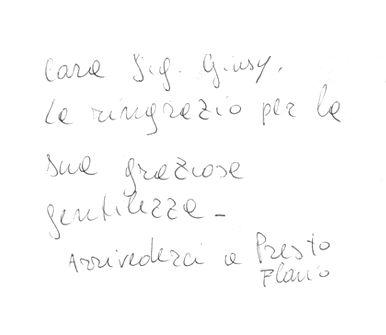 Cara Sig. Giusy.
La ringrazio per la
sua graziosa
gentilezza -
Arrivederci a Presto
Flavio